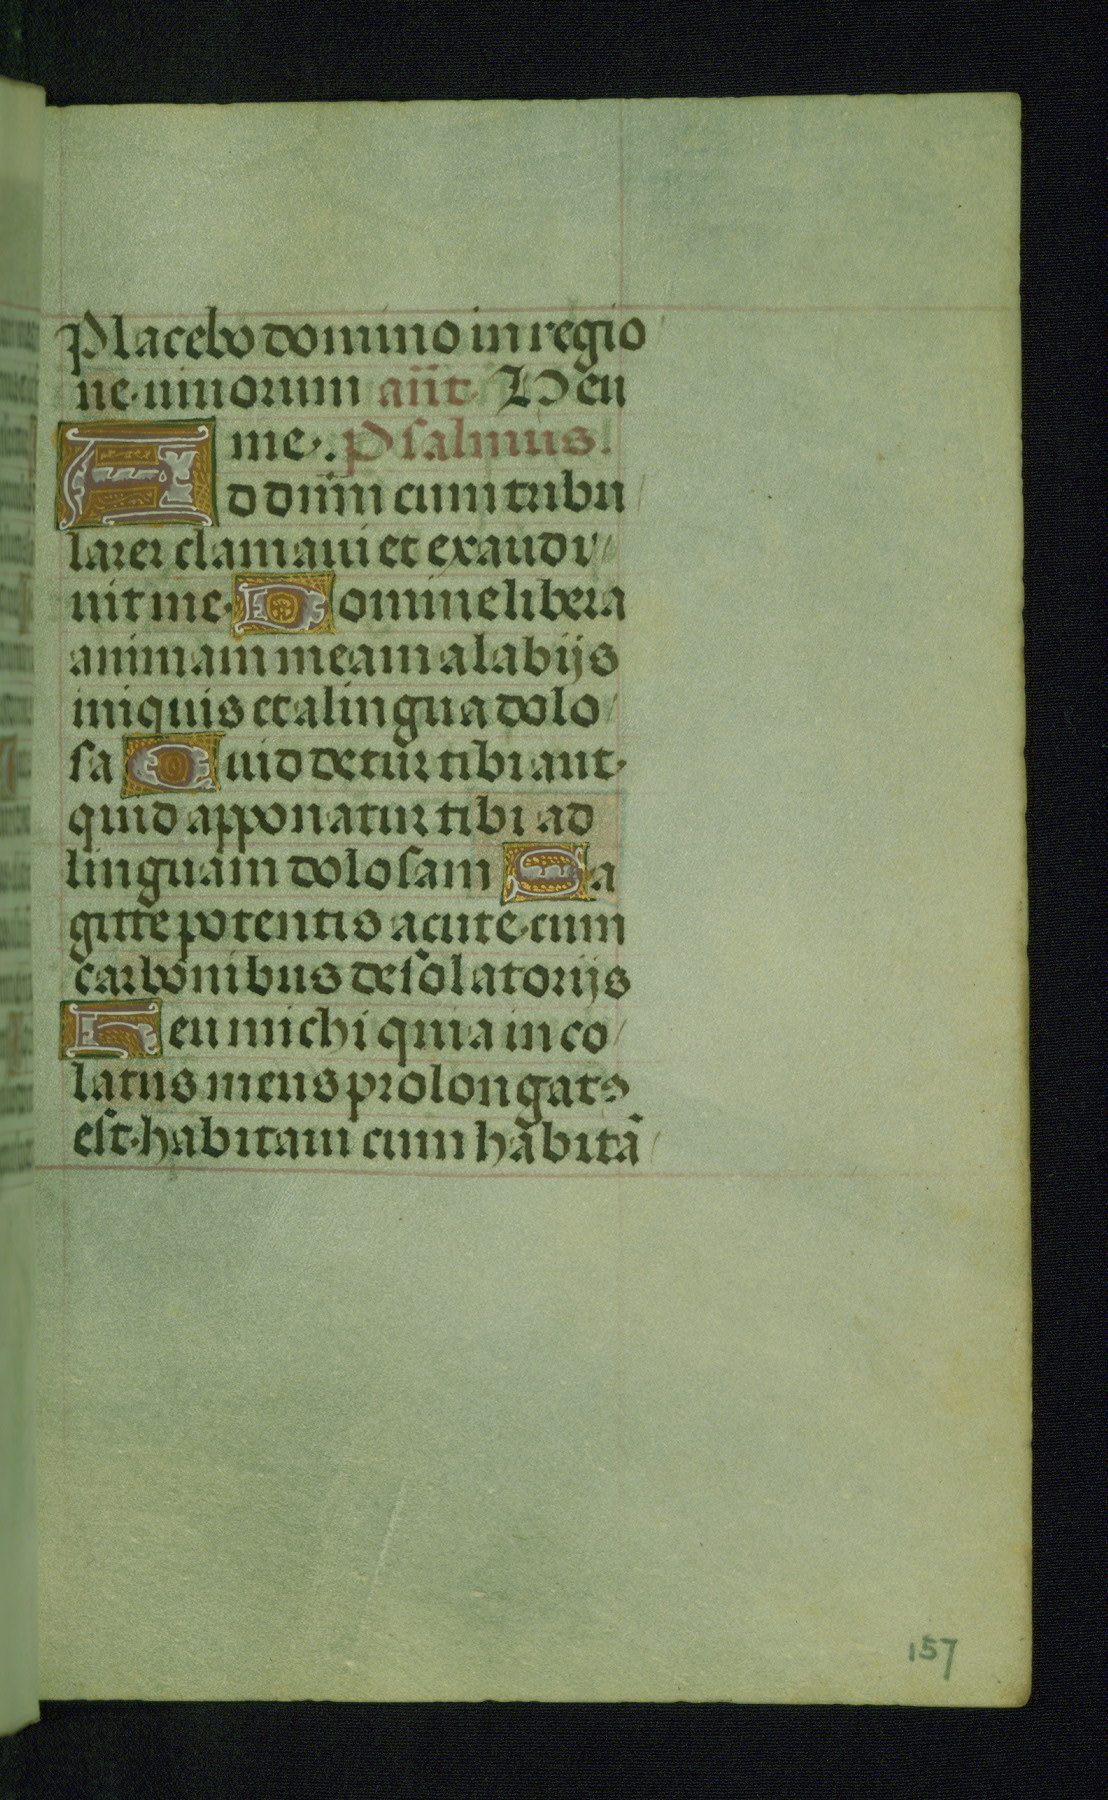 Placebo domino in regio
ne viuorum añt. Heu
me. Psalmus.
Ad dñm cum tribu
larer clamaui et exaudi
uit me. Domine libera
animam meam a labijs
iniquis et a lingua dolo
sa Quid detur tibi aut
quid apponatur tibi ad
linguam dolosam Sa
gitte potentis acute cum
carbonibus desolatorijs
Heu michi quia inco
latus meus prolongatꝰ
est habitaui cum habitā
157